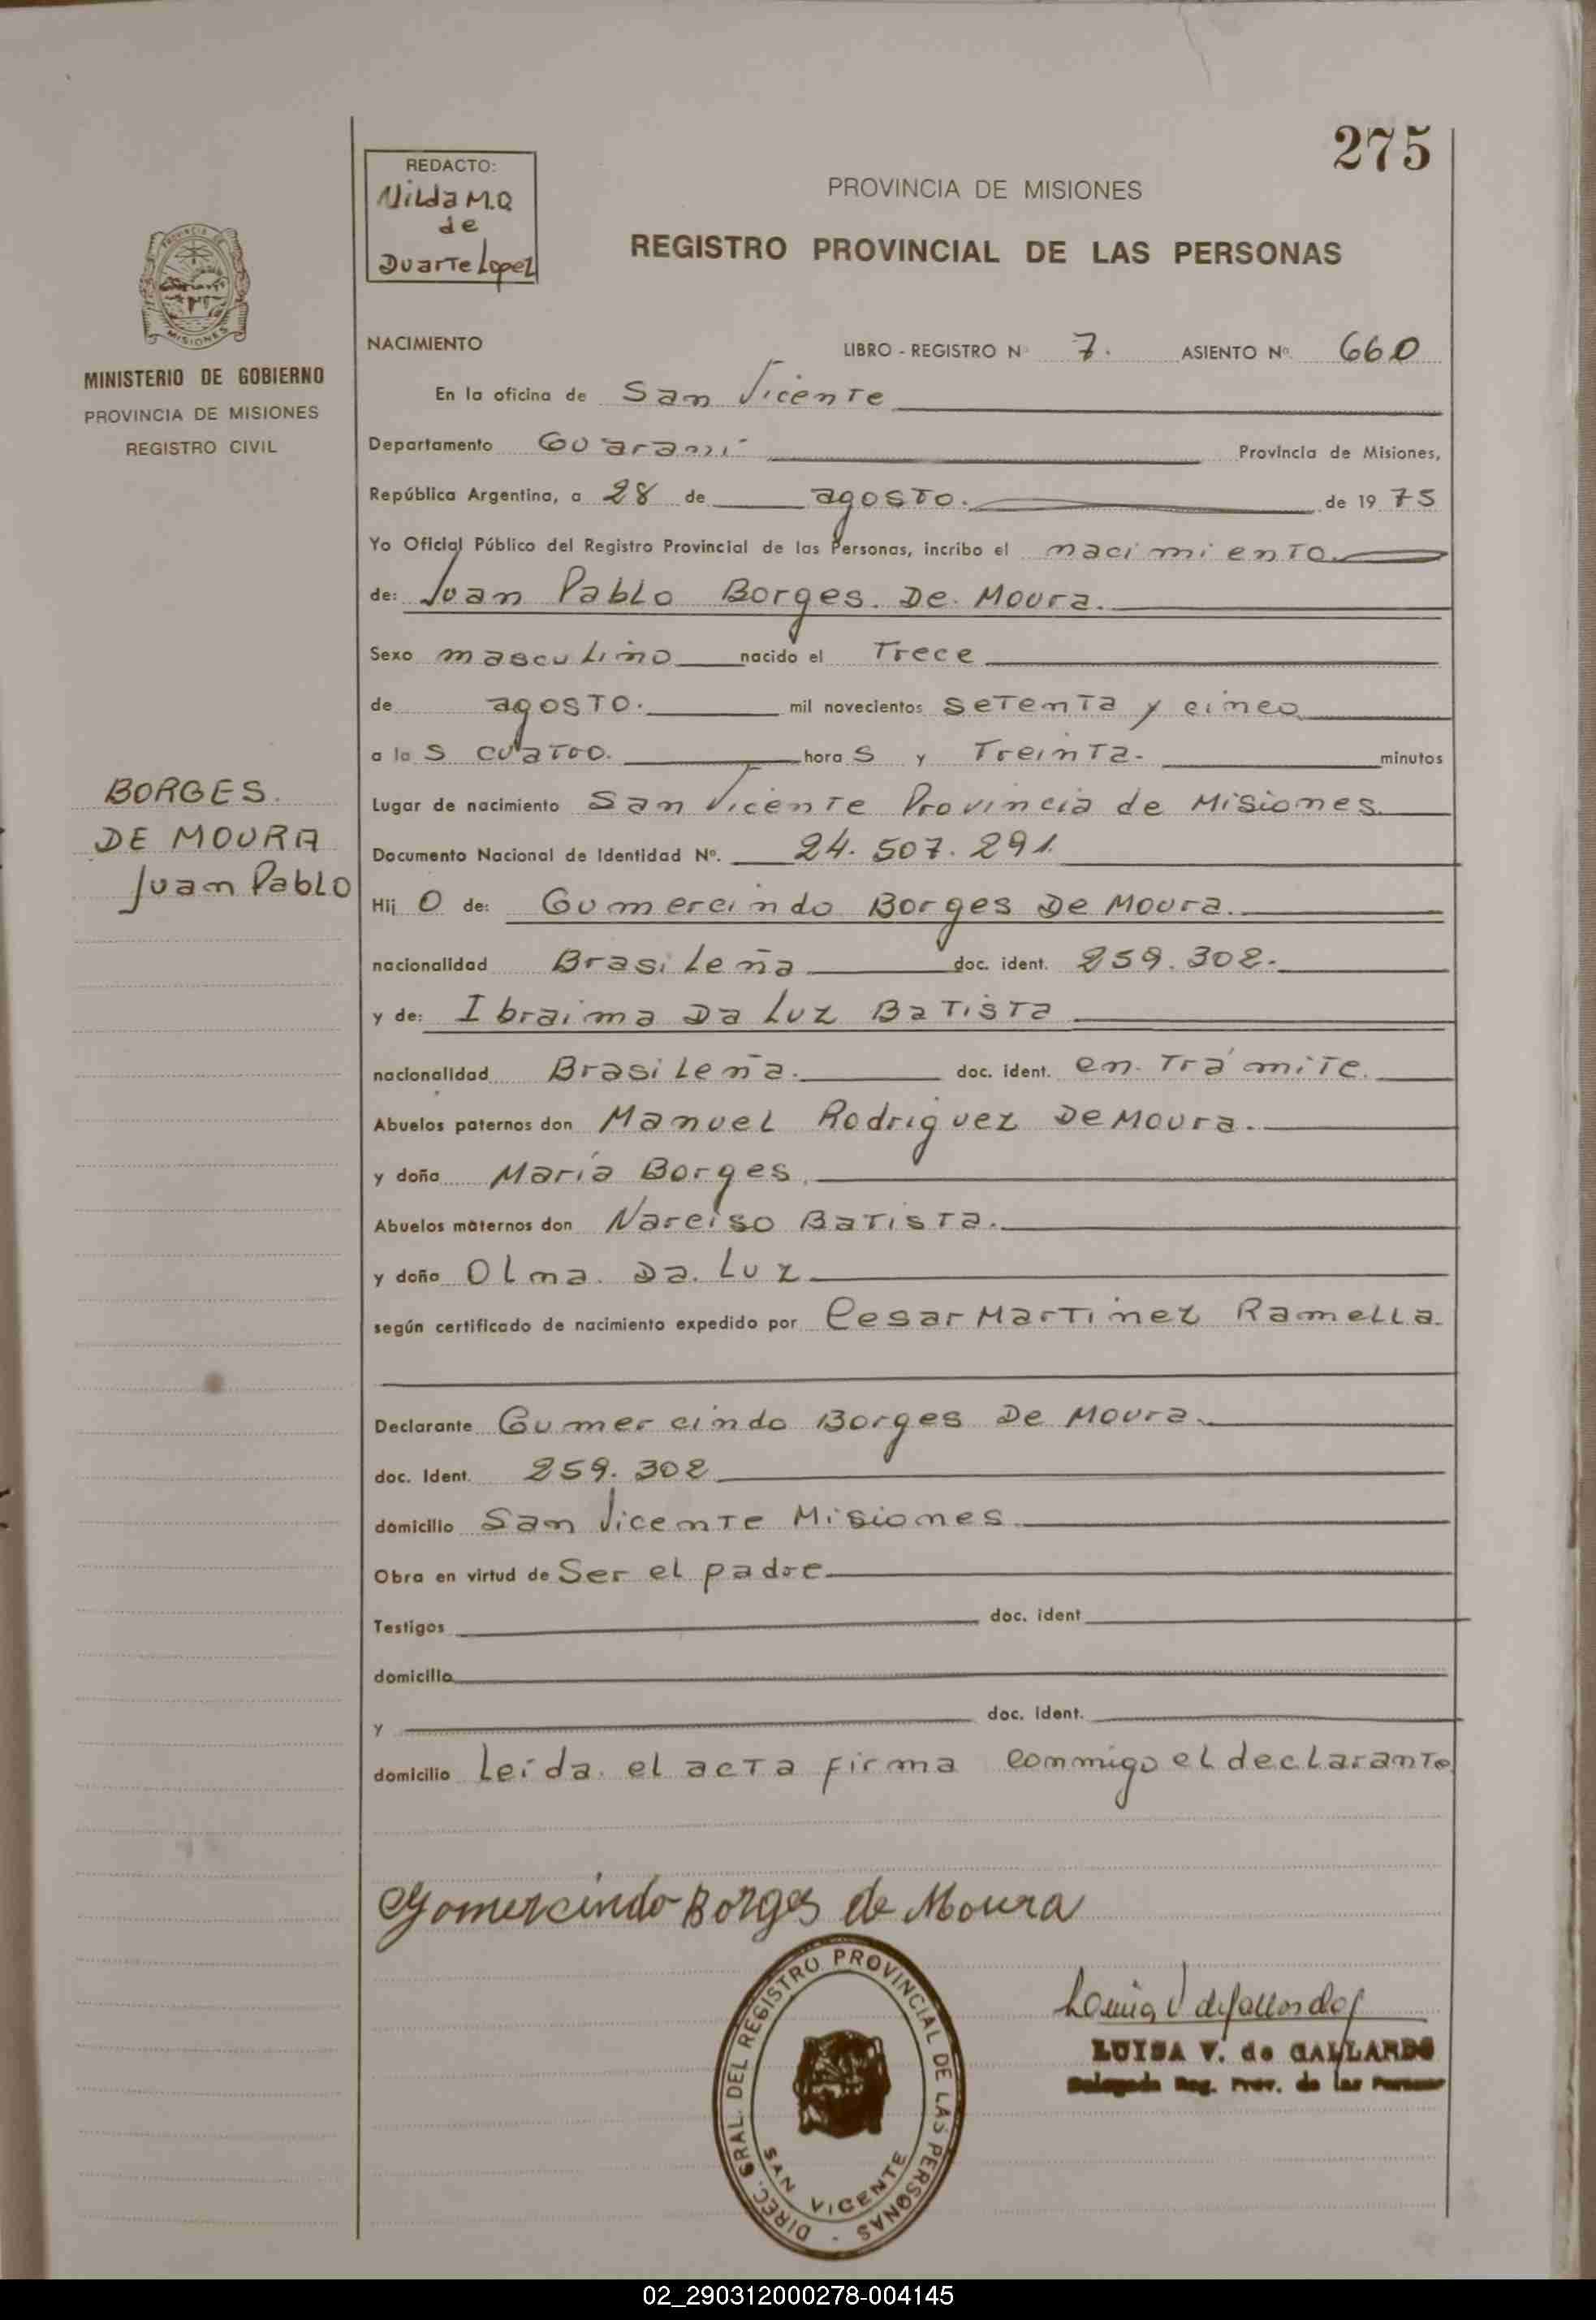 275
REDACTO:
Nilda M.Q
de
Duarte Lopez
PROVINCIA DE MISIONES
REGISTRO PROVINCIAL DE LAS PERSONAS
PROVINCIA DE
MISIONES
MINISTERIO DE GOBIERNO
PROVINCIA DE MISIONES
REGISTRO CIVIL
NACIMIENTO LIBRO - REGISTRO Nº 7. ASIENTO Nº. 660
En la oficina de San Vicente
Departamento Guaraní Provincia de Misiones,
República Argentina, a 28 de agosto. de 1975
Yo Oficial Público del Registro Provincial de las Personas, incribo el nacimiento.
de: Juan Pablo Borges. De Moura.
Sexo masculino nacido el Trece
de agosto. mil novecientos setenta y cinco
a las cuatro. horas y Treinta. minutos
BORGES.
DE MOURA
Juan Pablo
Lugar de nacimiento San Vicente Provincia de Misiones.
Documento Nacional de Identidad Nº. 24.507.291.
Hijo de: Gumercindo Borges De Moura.
nacionalidad Brasileña doc. ident. 259.302.
y de: Ibraima Da Luz Batista
nacionalidad Brasileña. doc. ident. en trámite.
Abuelos paternos don Manuel Rodriguez De Moura.
y doña María Borges.
Abuelos maternos don Narciso Batista.
y doña Olma. Da. Luz
según certificado de nacimiento expedido por Cesar Martinez Ramella.
Declarante Gumercindo Borges De Moura.
doc. Ident. 259.302
domicilio San Vicente Misiones
Obra en virtud de Ser el padre
Testigos doc. ident
domicilio
y doc. ident.
domicilio Leída el acta firma conmigo el declarante
Gomercindo Borges de Moura
DIREC. GRAL. DEL REGISTRO PROVINCIAL DE LAS PERSONAS -
SAN VICENTE
Luisa V de Gallardo
LUISA V. de GALLARDO
Delegada Reg. Prov. de las Personas
02_290312000278-004145